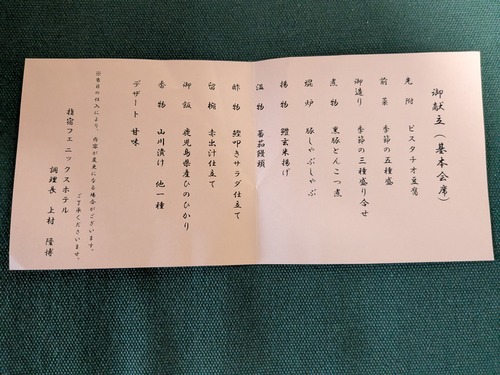 御献立（基本会席）
先附 ピスタチオ豆腐
前菜 季節の五種盛
御造り 季節の三種盛り合せ
煮物 黒豚とんこつ煮
焜炉 豚しゃぶしゃぶ
揚物 鱧玄米揚げ
温物 蕃茄饅頭
酢物 鰹叩きサラダ仕立て
留椀 赤出汁仕立て
御飯 鹿児島県産ひのひかり
香物 山川漬け 他一種
デザート 甘味
※当日の仕入により、内容が変更になる場合がございます。
ご了承くださいませ。
指宿フェニックスホテル
調理長 上村 隆博